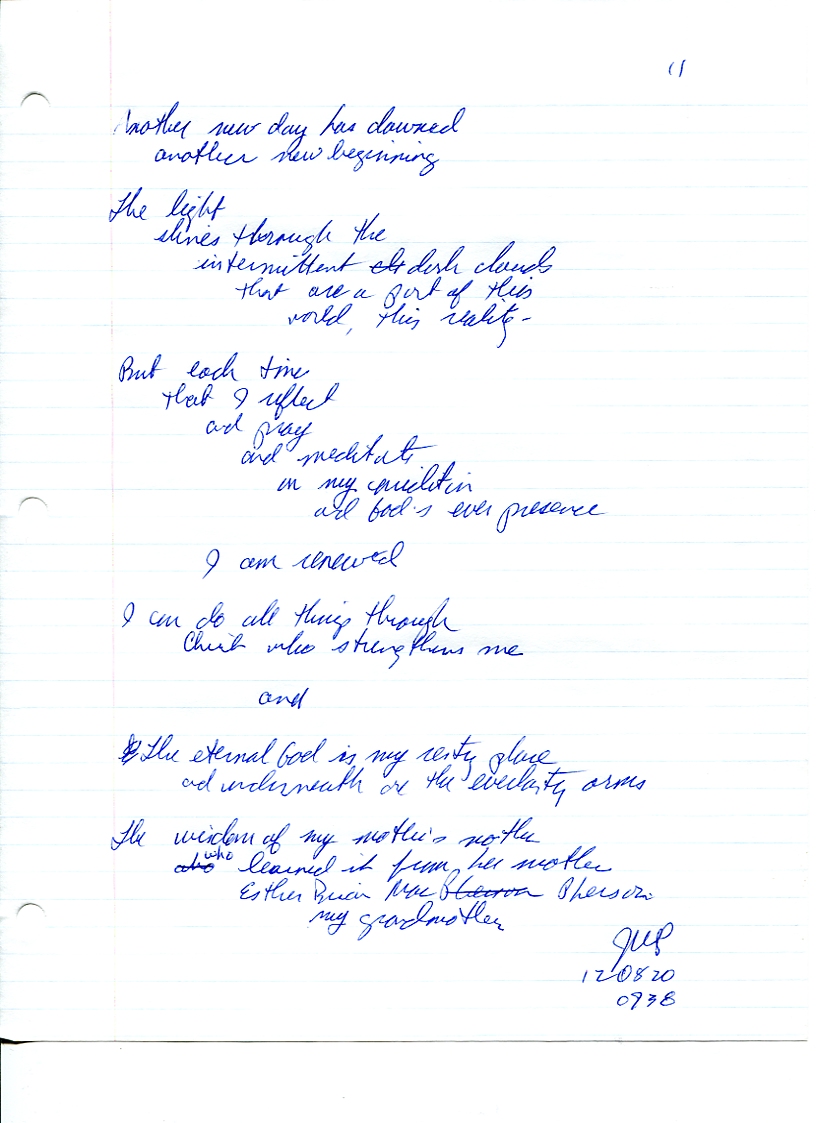 11
Another new day has dawned
another new beginning
The light
shines through the
intermittent dark clouds
that are a part of this
world, this reality-
But each time
that I reflect
and pray
and meditate
on my
and God's ever presence
I am renewed
I can do all things through
Christ who strengthens me
and
The eternal God is my resting place
and underneath are the everlasting arms
The wisdom of my mother's mother
who learned it from her mother
Esther Brian Mac Pherson
my grandmother
120820
0938